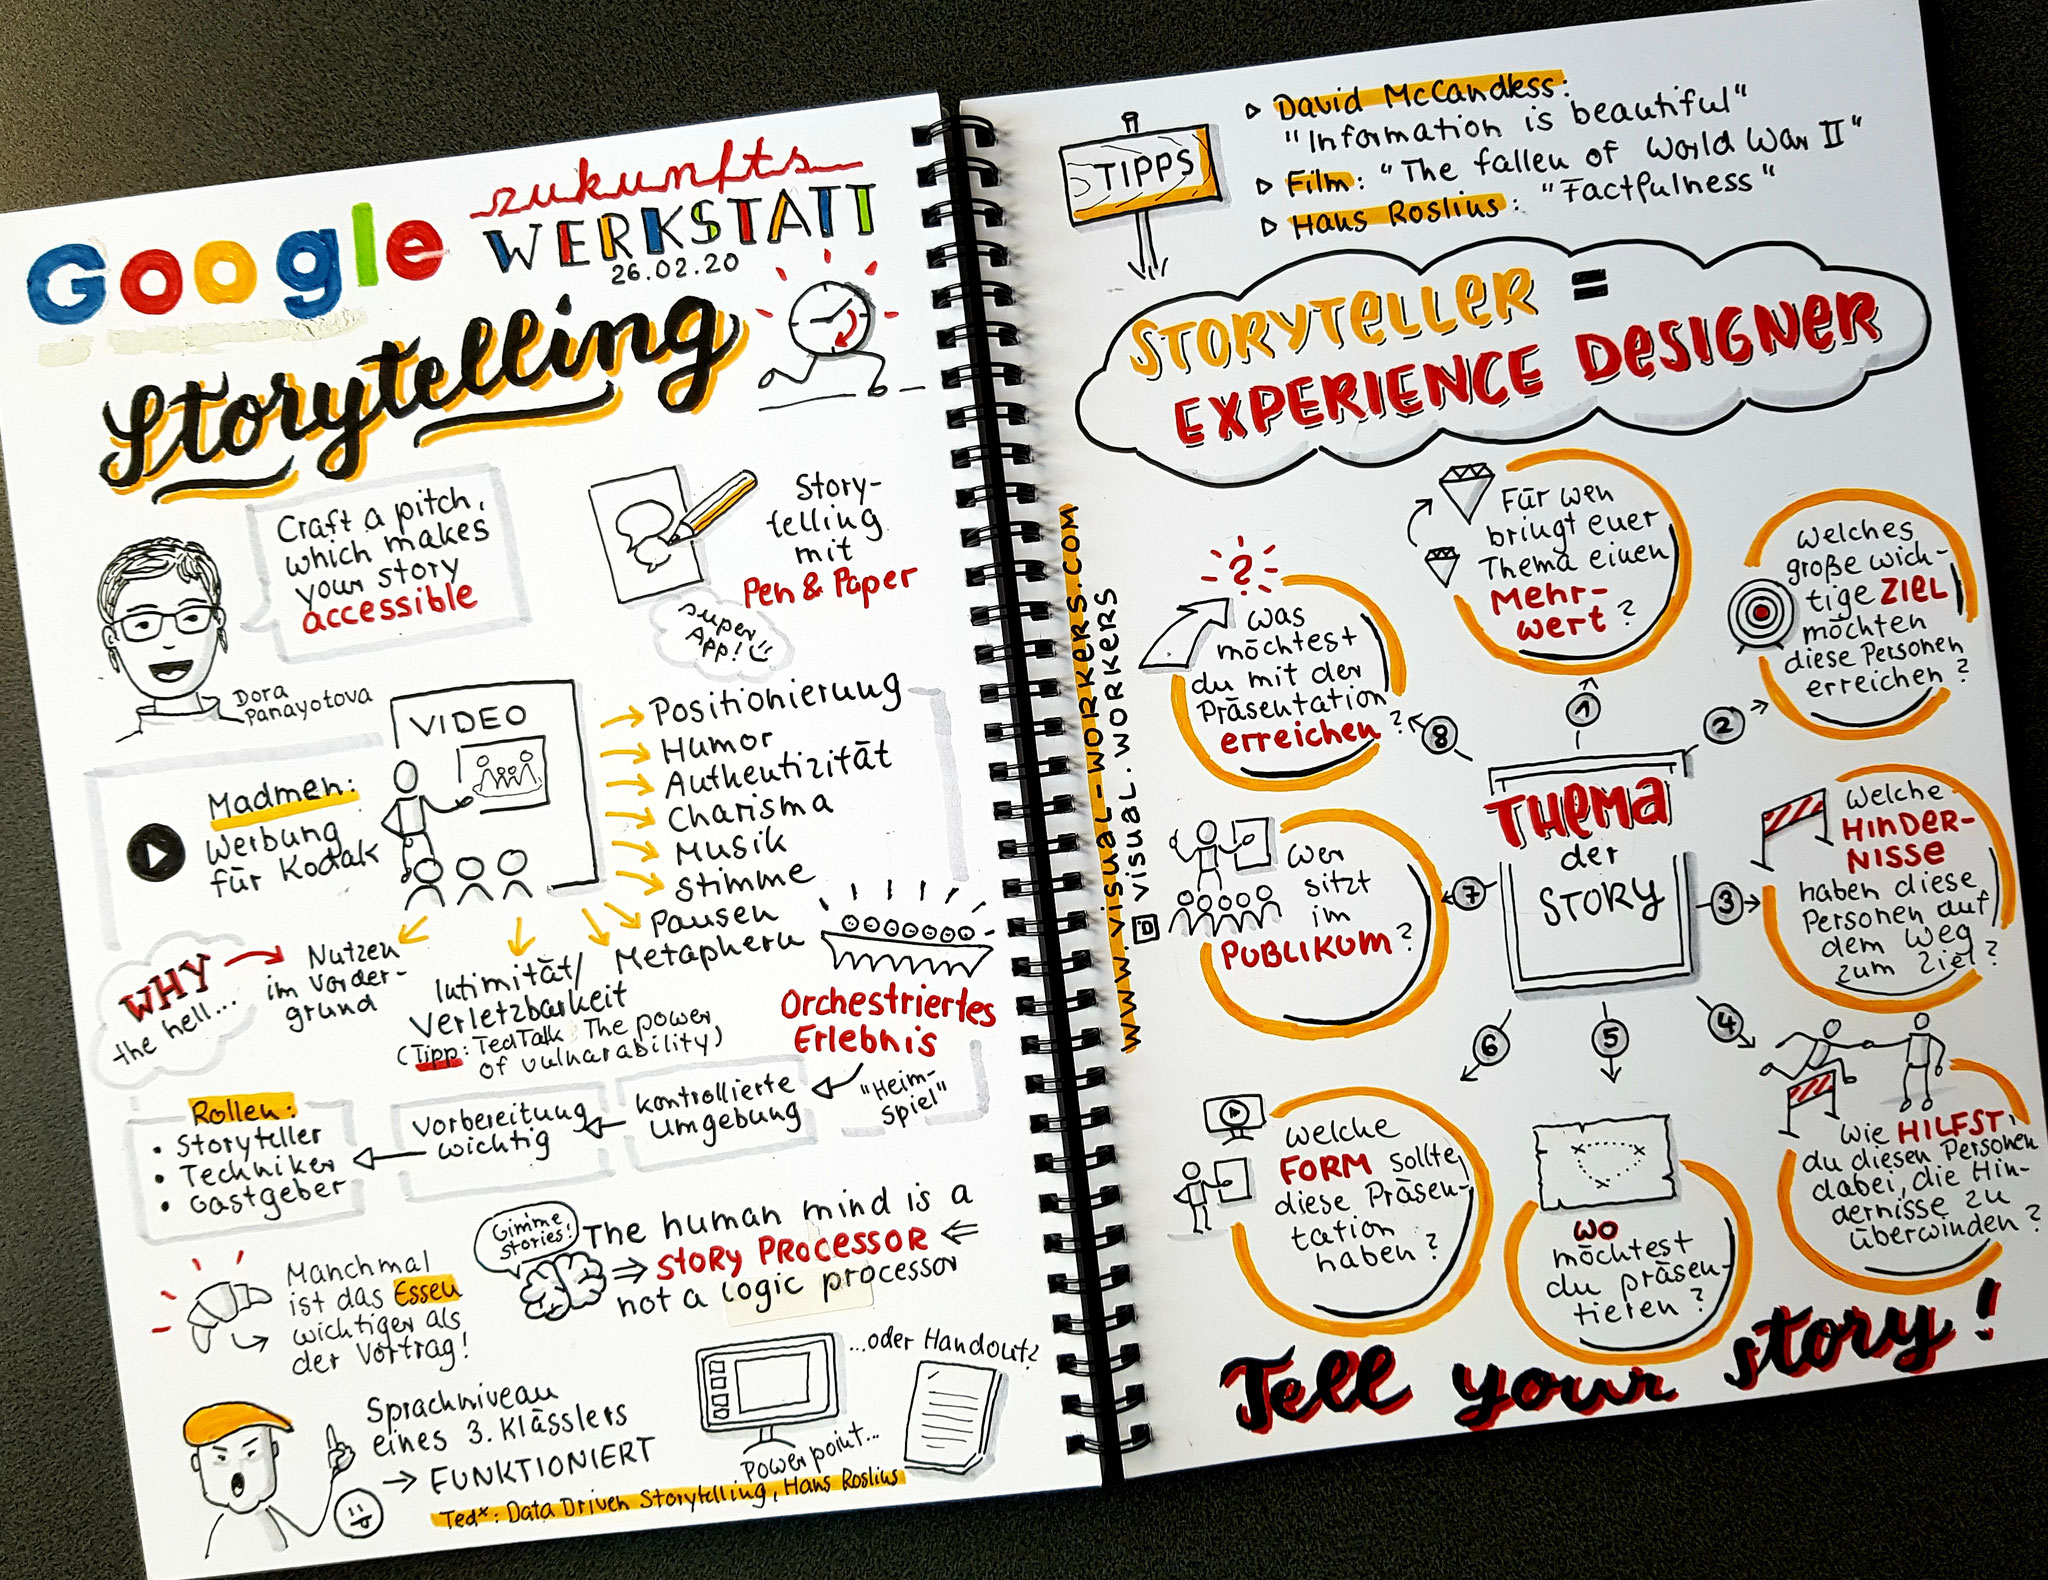 Google zukunfts
WERKSTATT
26.02.20
Storytelling
Craft a pitch,
which makes
your story
accessible
Dora
Panayotova
Story-
telling
mit
Pen & Paper
super
App!
VIDEO
Madmen:
Werbung
für Kodak
Positionierung
Humor
Authentizität
Charisma
Musik
Stimme
Pausen
Metaphern
Intimität/
Verletzbarkeit
(Tipp: TedTalk The power
of vulnarability)
Nutzen
im Vorder-
grund
WHY
the hell...
Orchestriertes
Erlebnis
"Heim-
spiel"
Kontrollierte
Umgebung
Vorbereitung
wichtig
Rollen:
• Storyteller
• Techniker
• Gastgeber
Gimme
stories!
The human mind is a
⇒ STORY PROCESSOR ⇐
not a logic processor
Manchmal
ist das Essen
wichtiger als
der Vortrag!
Sprachniveau
eines 3. Klässlers
→ FUNKTIONIERT
Powerpoint...
...oder Handout?
Tedx: Data Driven Storytelling, Hans Roslius
TIPPS
▷ David McCandless:
"Information is beautiful"
▷ Film: "The fallen of World War II"
▷ Hans Roslius: "Factfulness"
STORYTELLER =
EXPERIENCE DESIGNER
www.visual-workers.com
visual.workers
THEMA
der
STORY
1
Für wen
bringt euer
Thema einen
Mehr-
wert?
2
Welches
große wich-
tige ZIEL
möchten
diese Personen
erreichen?
3
Welche
HINDER-
NISSE
haben diese
Personen auf
dem Weg
zum Ziel?
4
Wie HILFST
du diesen Personen
dabei, die Hin-
dernisse zu
überwinden?
5
WO
möchtest
du präsen-
tieren?
6
Welche
FORM sollte
diese Präsen-
tation
haben?
7
Wer
sitzt
im
PUBLIKUM?
8
?
Was
möchtest
du mit der
Präsentation
erreichen?
Tell your story!